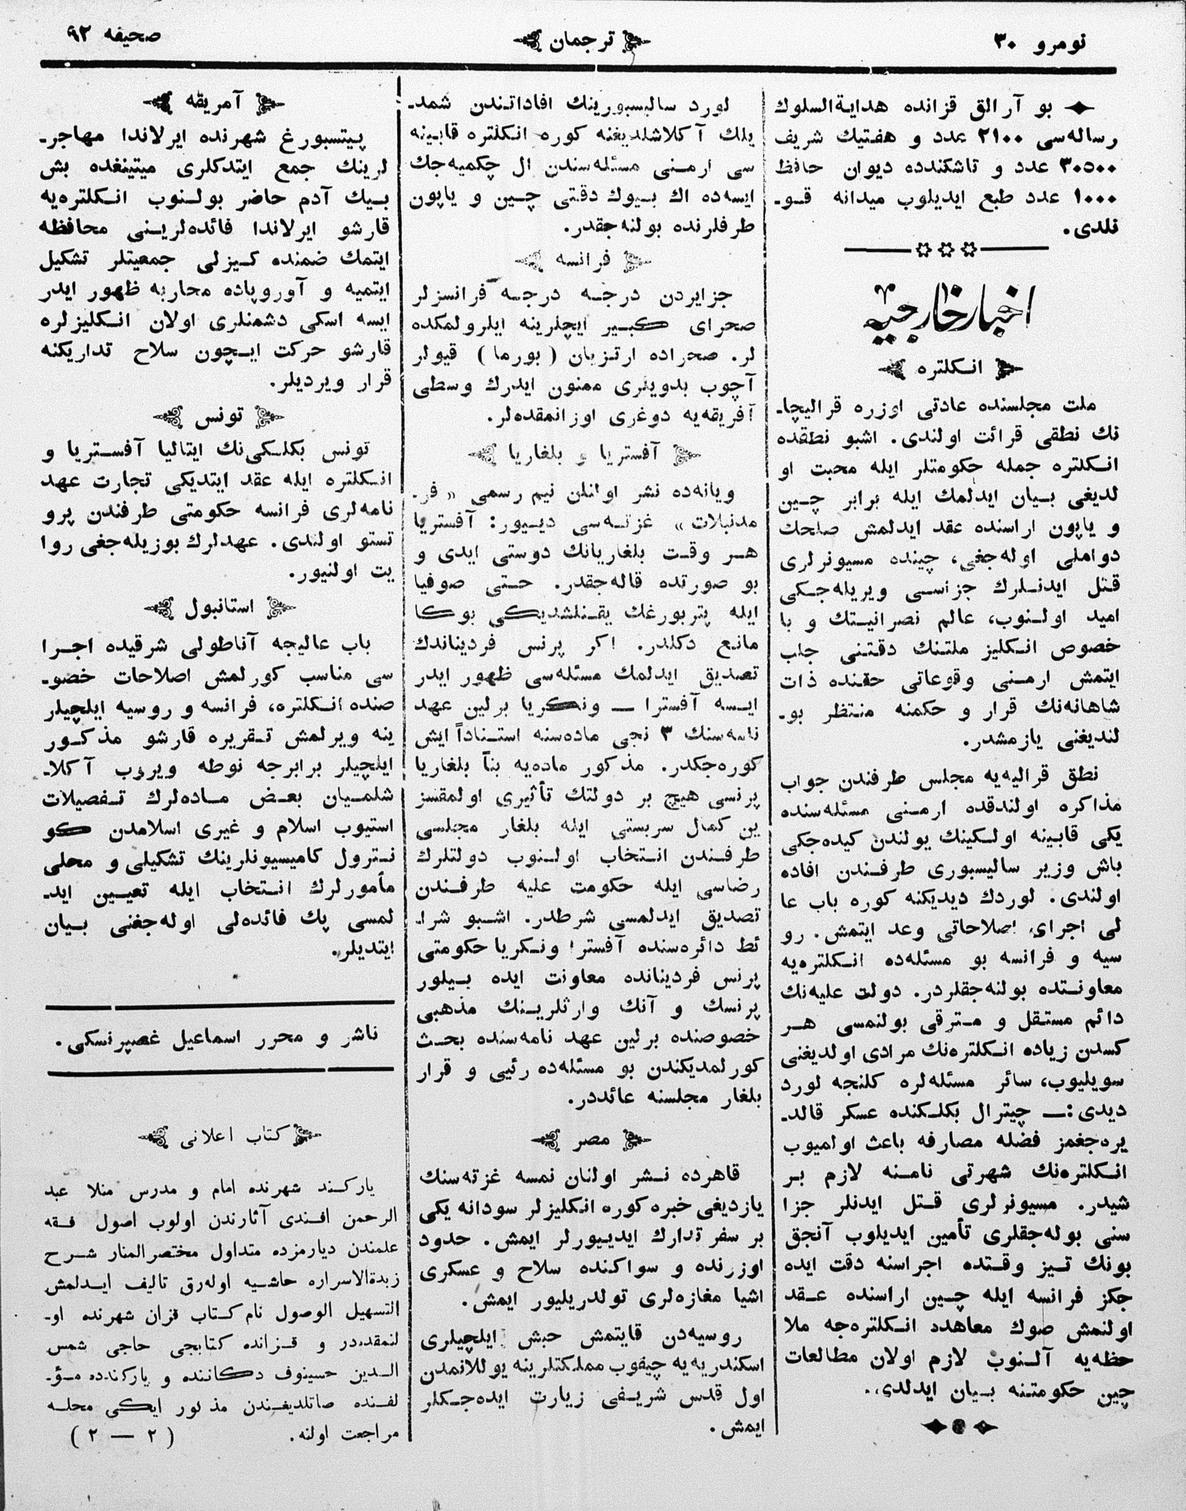 نومرو ۳۰
ترجمان
صحیفه ۹۲
بو آرالق قزانده هدایةالسلوك
رساله‌سی ۲۱۰۰ عدد و هفتیك شریف
۳۰۵۰۰ عدد و تاشکندده دیوان حافظ
۱۰۰۰ عدد طبع ایدیلوب میدانه قو-
نلدی.
اخبار خارجیه
انکلتره
ملت مجلسنده عادتی اوزره قرالیچا-
نك نطقی قرائت اولندی. اشبو نطقده
انکلتره جمله حکومتلر ایله محبت او
لدیغی بیان ایدلمك ایله برابر چین
و یاپون اراسنده عقد ایدلمش صلحك
دواملی اوله‌جغی، چینده مسیونرلری
قتل ایدنلرك جزاسی ویریله‌جکی
امید اولنوب، عالم نصرانیتك و با
خصوص انکلیز ملتنك دقتنی جلب
ایتمش ارمنی وقوعاتی حقنده ذات
شاهانه‌نك قرار و حکمنه منتظر بو-
لندیغنی یازمشدر.
نطق قرالیه‌یه مجلس طرفندن جواب
مذاکره اولندقده ارمنی مسئله‌سنده
یکی قابینه اولکینك یولندن کیده‌جکی
باش وزیر سالیسبوری طرفندن افاده
اولندی. لوردك دیدیکنه کوره باب عا
لی اجرای اصلاحاتی وعد ایتمش. رو
سیه و فرانسه بو مسئله‌ده انکلتره‌یه
معاونتده بولنه‌جقلردر. دولت علیه‌نك
دائم مستقل و مترقی بولنمسی هر
کسدن زیاده انکلتره‌نك مرادی اولدیغنی
سویلیوب، سائر مسئله‌لره کلنجه لورد
دیدی:— چیترال بکلکنده عسکر قالد-
یره‌جغمز فضله مصارفه باعث اولمیوب
انکلتره‌نك شهرتی نامنه لازم بر
شیدر. مسیونرلری قتل ایدنلر جزا
سنی بوله‌جقلری تأمین ایدیلوب آنجق
بونك تیز وقتده اجراسنه دقت ایده
جکز فرانسه ایله چین اراسنده عقد
اولنمش صوك معاهدد انکلتره‌جه ملا
حظه‌یه آلنوب لازم اولان مطالعات
چین حکومتنه بیان ایدلدی.
لورد سالیسبورینك افاداتندن شمد-
یلك آکلاشلدیغنه کوره انکلتره قابینه
سی ارمنی مسئله‌سندن ال چکمیه‌جك
ایسه‌ده اك بیوك دقتی چین و یاپون
طرفلرنده بولنه‌جقدر.
فرانسه
جزایردن درجه درجه فرانسزلر
صحرای کبیر ایچلرینه ایلرولمکده
لر. صحراده ارتزیان (بورما) قیولر
آچوب بدویلری ممنون ایدرك وسطی
آفریقه‌یه دوغری اوزانمقده‌لر.
آفستریا و بلغاریا
ویانه‌ده نشر اولنان نیم رسمی « فر-
مدنبلات» غزته‌سی دییور: آفستریا
هر وقت بلغاریانك دوستی ایدی و
بو صورتده قاله‌جقدر. حتی صوفیا
ایله پتربورغك یقنلشدیکی بوکا
مانع دکلدر. اکر پرنس فردیناندك
تصدیق ایدلمك مسئله‌سی ظهور ایدر
ایسه آفسترا — ونکریا برلین عهد
نامه‌سنك ۳ نجی ماده‌سنه استناداً ایش
کوره‌جکدر. مذکور ماده‌یه بناً بلغاریا
پرنسی هیچ بر دولتك تأثیری اولمقسز
ین کمال سربستی ایله بلغار مجلسی
طرفندن انتخاب اولنوب دولتلرك
رضاسی ایله حکومت علیه طرفندن
تصدیق ایدلمسی شرطدر. اشبو شرا-
ئط دائره‌سنده آفسترا ونکریا حکومتی
پرنس فردینانده معاونت ایده بیلور
پرنسك و آنك وارثلرینك مذهبی
خصوصنده برلین عهد نامه‌سنده بحث
کورلمدیکندن بو مسئله‌ده رئیی و قرار
بلغار مجلسنه عائددر.
مصر
قاهرده نشر اولنان نمسه غزته‌سنك
یازدیغی خبره کوره انکلیزلر سودانه یکی
بر سفر تدارك ایدییورلر ایمش. حدود
اوزرنده و سواکنده سلاح و عسکری
اشیا مغازه‌لری تولدریلیور ایمش.
روسیه‌دن قایتمش حبش ایلچیلری
اسکندریه‌یه چیقوب مملکتلرینه یوللانمدن
اول قدس شریفی زیارت ایده‌جکلر
ایمش.
آمریقه
پیتسبورغ شهرنده ایرلاندا مهاجر-
لرینك جمع ایتدکلری میتینغده بش
بیك آدم حاضر بولنوب انکلتره‌یه
قارشو ایرلاندا فائده‌لرینی محافظه
ایتمك ضمنده کیزلی جمعیتلر تشکیل
ایتمیه و آوروپاده محاربه ظهور ایدر
ایسه اسکی دشمنلری اولان انکلیزلره
قارشو حرکت ایچون سلاح تدارکنه
قرار ویردیلر.
تونس
تونس بکلکی‌نك ایتالیا آفستریا و
انکلتره ایله عقد ایتدیکی تجارت عهد
نامه‌لری فرانسه حکومتی طرفندن پرو
تستو اولندی. عهدلرك بوزیله‌جغی روا
یت اولنیور.
استانبول
باب عالیجه آناطولی شرقیده اجرا
سی مناسب کورلمش اصلاحات خصو-
صنده انکلتره، فرانسه و روسیه ایلچیلر
ینه ویرلمش تقریره قارشو مذکور
ایلچیلر برابرجه نوطه ویروب آکلا-
شلمیان بعض ماده‌لرك تفصیلات
استیوب اسلام و غیری اسلامدن کو
نترول کامیسیونلرینك تشکیلی و محلی
مأمورلرك انتخاب ایله تعیین اید-
لمسی پك فائده‌لی اوله‌جغنی بیان
ایتدیلر.
ناشر و محرر اسماعیل غصپرنسکی.
کتاب اعلانی
یارکند شهرنده امام و مدرس منلا عبد
الرحمن افندی آثارندن اولوب اصول فقه
علمندن دیارمزده متداول مختصرالمنار شرح
زبدةالاسراره حاشیه اوله‌رق تالیف ایدلمش
التسهیل الوصول نام کتاب قزان شهرنده او-
لنمقده‌در و قزانده کتابجی حاجی شمس
الدین حسینوف دکاننده و یارکندده مؤ-
لفنده صاتلدیغندن مذکور ایکی محله
مراجعت اولنه.
(۲ — ۲)